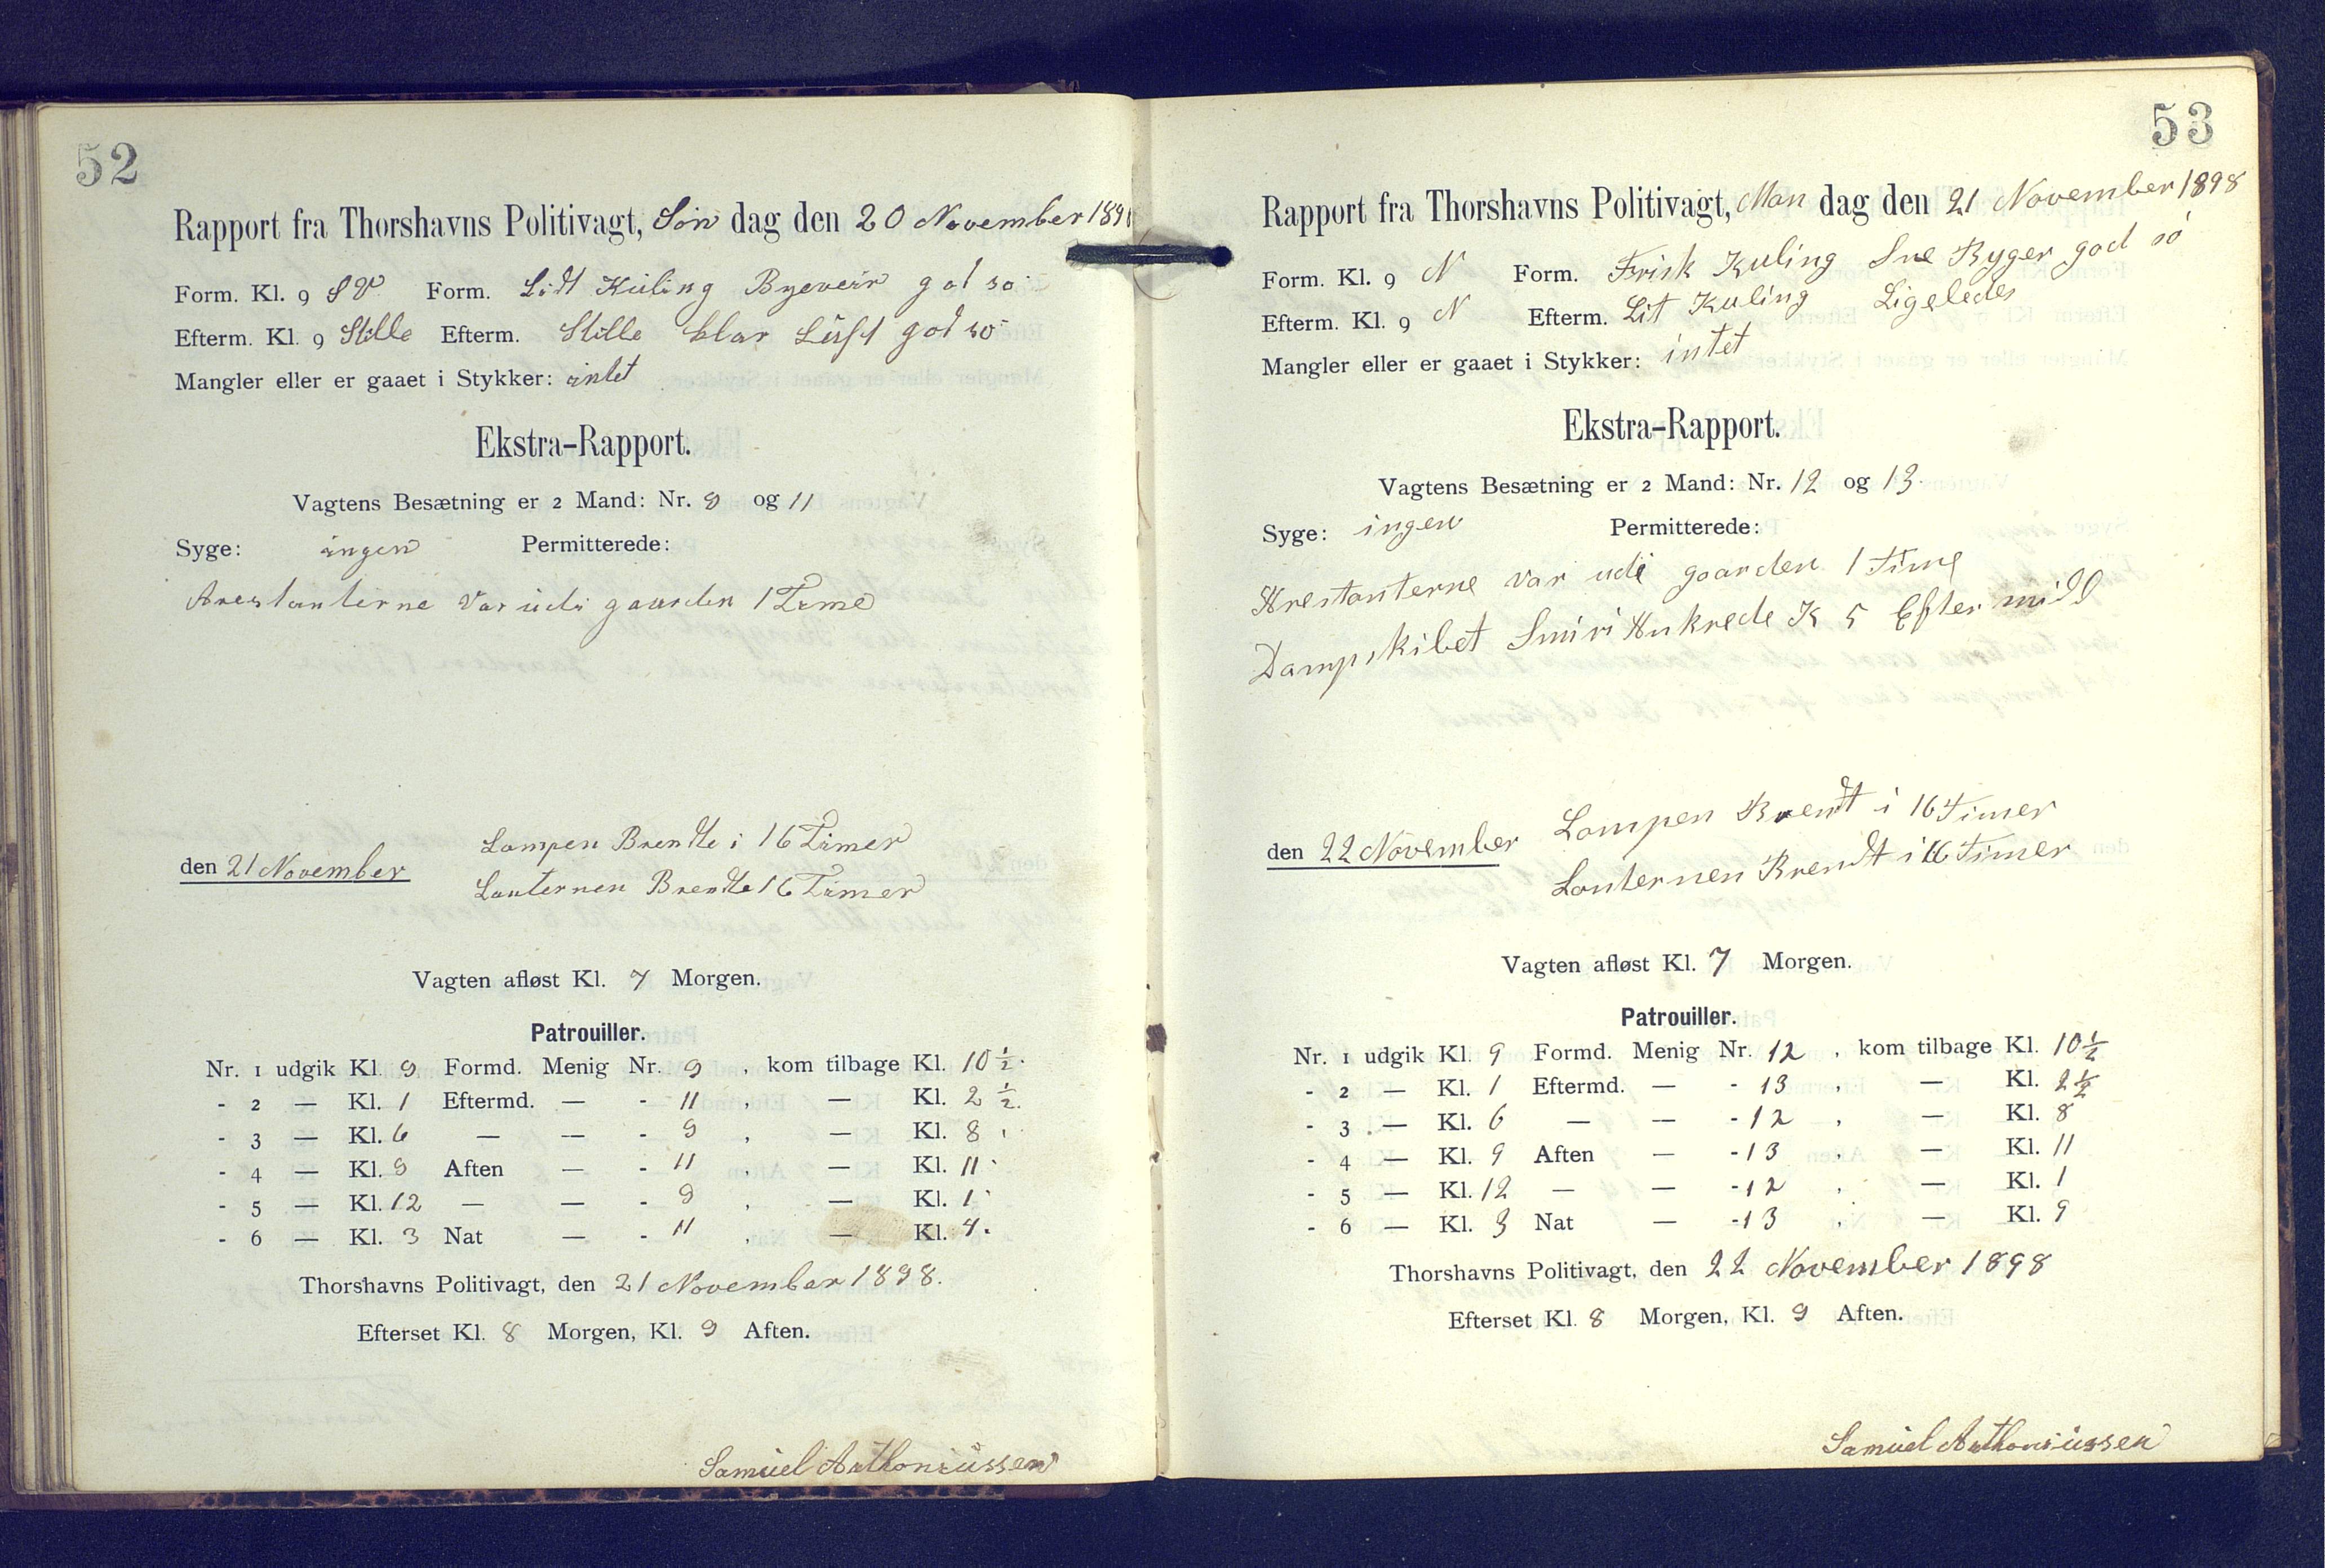 52
Rapport fra Thorshavns Politivagt, Søn dag den 20 November 189
Form. Kl. 9 SV Form. Lidt Kuling Byeveir god sø
Efterm. Kl. 9 Stille Efterm. Stille klar Luft god sø
Mangler eller er gaaet i Stykker: intet
Ekstra-Rapport.
Vagtens Besætning er 2 Mand: Nr. 9 og 11
Syge: ingen Permitterede:
Arestanterne var udi gaarden 1 Time
den 21 November
Lampen Brendte i 16 Timer
Lanternen Brendte 16 Timer
Vagten afløst Kl. 7 Morgen.
Patrouiller.
Nr. 1 udgik Kl. 9 Formd. Menig Nr. 9 , kom tilbage Kl. 10 ½.
- 2 — Kl. 1 Eftermd. — - 11 , — Kl. 2 ½.
- 3 — Kl. 6 — — - 9 , — Kl. 8
- 4 — Kl. 9 Aften — - 11 , — Kl. 11
- 5 — Kl. 12 — — - 9 , — Kl. 1
- 6 — Kl. 3 Nat — - 11 , — Kl. 4.
Thorshavns Politivagt, den 21 November 1898.
Efterset Kl. 8 Morgen, Kl. 9 Aften.
Samuel Anthoniussen
53
Rapport fra Thorshavns Politivagt, Man dag den 21 November 1898
Form. Kl. 9 N Form. Frisk Kuling Sne Byger god sø
Efterm. Kl. 9 N Efterm. Lit Kuling Ligeledes
Mangler eller er gaaet i Stykker: intet
Ekstra-Rapport.
Vagtens Besætning er 2 Mand: Nr. 12 og 13.
Syge: ingen Permitterede:
Arestanterne var udi gaarden 1 Time
Dampskibet Smiri Ankrede K 5 Eftermidd
den 22 November
Lampen Brendt i 16 Timer
Lanternen Brendt i 16 Timer
Vagten afløst Kl. 7 Morgen.
Patrouiller.
Nr. 1 udgik Kl. 9 Formd. Menig Nr. 12 , kom tilbage Kl. 10 ½
- 2 — Kl. 1 Eftermd. — - 13 , — Kl. 2 ½
- 3 — Kl. 6 — — - 12 , — Kl. 8
- 4 — Kl. 9 Aften — - 13 , — Kl. 11
- 5 — Kl. 12 — — - 12 , — Kl. 1
- 6 — Kl. 3 Nat — - 13 , — Kl. 9
Thorshavns Politivagt, den 22 November 1898
Efterset Kl. 8 Morgen, Kl. 9 Aften.
Samuel Anthoniussen